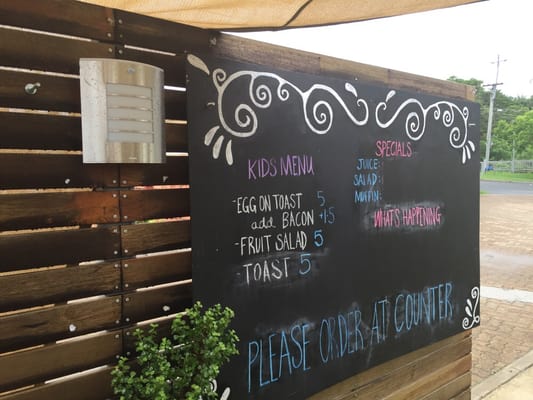 KIDS MENU
-EGG ON TOAST 5
add BACON +1.5
-FRUIT SALAD 5
TOAST 5
SPECIALS...
JUICE:
SALAD:
MUFFIN:
WHATS HAPPENING
PLEASE ORDER AT COUNTER